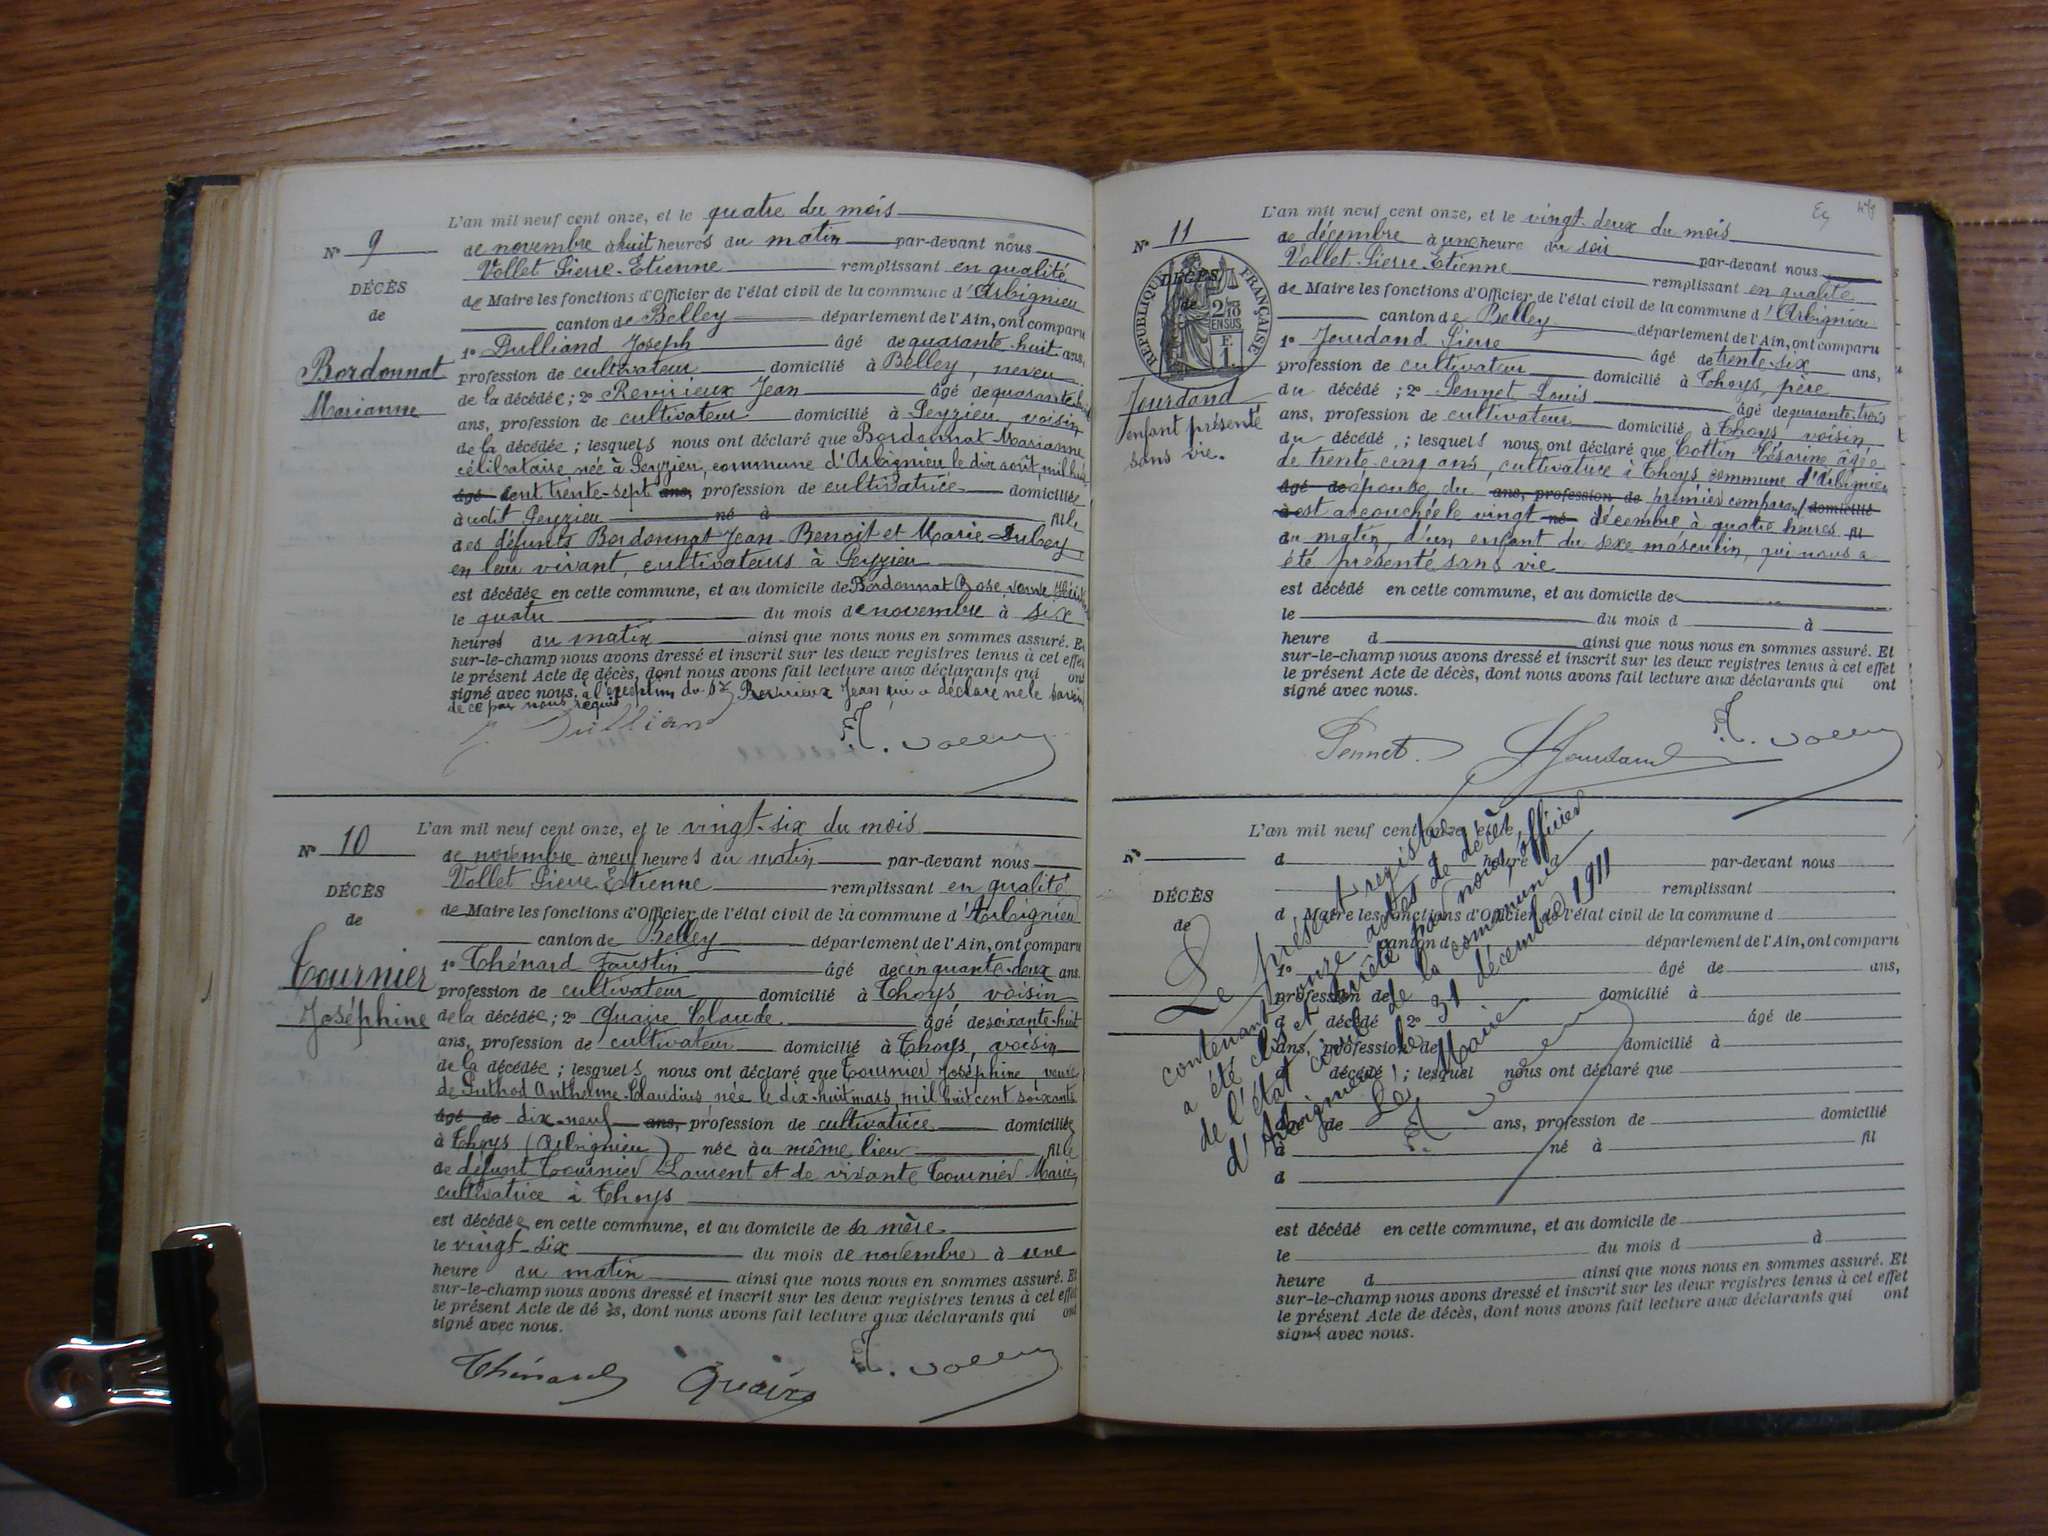 L'an mil neuf cent onze, et le quatre du mois
N° 9
de novembre à huit heures du matin par-devant nous
Vollet Pierre-Etienne remplissant en qualité
DÉCÈS
de Maire les fonctions d'Officier de l'état civil de la commune d'Arbignieu
de
canton de Belley département de l'Ain, ont comparu
1° Dulliand Joseph âgé de quarante-huit ans,
Bordonnat
profession de cultivateur domicilié à Belley, neveu
Marianne
de la décédée; 2° Revirieux Jean âgé de quarante
ans, profession de cultivateur domicilié à Peyzieu, voisin
de la décédée; lesquels nous ont déclaré que Bordonnat Marianne
célibataire née à Peyzieu, commune d'Arbignieu le dix août mil huit
âgé cent trente-sept ans, profession de cultivatrice domiciliée
à udit Peyzieu né à fille
des défunts Bordonnat Jean-Benoit et Marie Dubey
en leur vivant, cultivateurs à Peyzieu
est décédée en cette commune, et au domicile de Bordonnat Rose, veuve
le quatre du mois de novembre à six
heures du matin ainsi que nous nous en sommes assuré. Et
sur-le-champ nous avons dressé et inscrit sur les deux registres tenus à cet effet
le présent Acte de décès, dont nous avons fait lecture aux déclarants qui ont
signé avec nous, à l'exception du Sr Revirieux Jean qui a déclaré ne le savoir
de ce par nous requis
Dullian
Vollet
N° 10
L'an mil neuf cent onze, et le vingt-six du mois
de novembre à neuf heures du matin par-devant nous
Vollet Pierre Etienne remplissant en qualité
DÉCÈS
de Maire les fonctions d'Officier de l'état civil de la commune d'Arbignieu
de
canton de Belley département de l'Ain, ont comparu
Tournier
1° Thénard Faustin âgé de cinquante-deux ans
profession de cultivateur domicilié à Thoys voisin
Joséphine
de la décédée; 2° Quaire Claude âgé de soixante-huit
ans, profession de cultivateur domicilié à Thoys, voisin
de la décédée; lesquels nous ont déclaré que Tournier Joséphine, veuve
de Puthod Anthelme-Claudius née le dix-huit mars, mil huit cent soixante
âgé de dix-neuf ans, profession de cultivatrice domiciliée
à Thoys (Arbignieu) née au même lieu fille
de défunt Tournier Laurent et de vivante Tournier Marie,
cultivatrice à Thoys
est décédée en cette commune, et au domicile de sa mère
le vingt-six du mois de novembre à une
heure du matin ainsi que nous nous en sommes assuré. Et
sur-le-champ nous avons dressé et inscrit sur les deux registres tenus à cet effet
le présent Acte de décès, dont nous avons fait lecture aux déclarants qui ont
signé avec nous.
Thénard Quaire Vollet
L'an mil neuf cent onze, et le vingt-deux du mois
N° 11
de décembre à une heure du soir par-devant nous
Vollet Pierre-Etienne remplissant en qualité
DÉCÈS
de
RÉPUBLIQUE FRANÇAISE
2/10
EN SUS
de Maire les fonctions d'Officier de l'état civil de la commune d'Arbignieu
canton de Belley département de l'Ain, ont comparu
1° Jourdand Pierre âgé de trente-six ans,
profession de cultivateur domicilié à Thoys, père
Jourdand
du décédé; 2° Pennet Louis âgé de quarante-trois
enfant présenté
ans, profession de cultivateur domicilié à Thoys voisin
sans vie.
du décédé; lesquels nous ont déclaré que Cottin Césarine âgée
de trente-cinq ans, cultivatrice à Thoys commune d'Arbignieu
âgé de épouse du ans, profession de premier comparant domicilié
à est accouchée le vingt né décembre à quatre heures fil
du matin, d'un enfant du sexe masculin, qui nous a
été présenté sans vie
est décédé en cette commune, et au domicile de
le du mois d à
heure d ainsi que nous nous en sommes assuré. Et
sur-le-champ nous avons dressé et inscrit sur les deux registres tenus à cet effet
le présent Acte de décès, dont nous avons fait lecture aux déclarants qui ont
signé avec nous.
Pennet Jourdand Vollet
L'an mil neuf cent onze, et le
N°
d heure par-devant nous
remplissant
DÉCÈS
d Maire les fonctions d'Officier de l'état civil de la commune d
de
canton d département de l'Ain, ont comparu
1° âgé de ans,
profession de domicilié à
d décédé 2° âgé de
ans, profession de domicilié à
d décédé; lesquel nous ont déclaré que
âgé de ans, profession de domicilié
à né à fil
d
est décédé en cette commune, et au domicile de
le du mois d à
heure d ainsi que nous nous en sommes assuré. Et
sur-le-champ nous avons dressé et inscrit sur les deux registres tenus à cet effet
le présent Acte de décès, dont nous avons fait lecture aux déclarants qui ont
signé avec nous.
Le présent registre
contenant onze actes de décès
a été clos et arrêté par nous, officier
de l'état civil de la commune
d'Arbignieu le 31 décembre 1911
Le Maire
Vollet